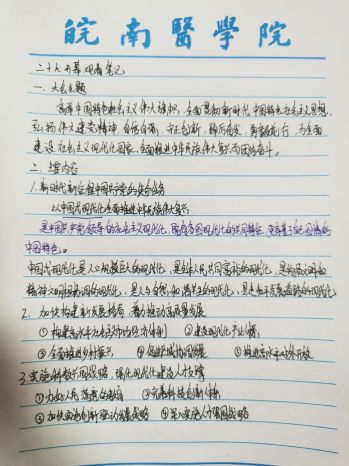 皖南醫學院
二十大开幕观看笔记
一、大会主题
高举中国特色社会主义伟大旗帜，全面贯彻新时代中国特色社会主义思想，
弘扬伟大建党精神，自信自强，守正创新，踔厉奋发，勇毅前行，为全面
建设社会主义现代化国家、全面推进中华民族伟大复兴而团结奋斗。
二、主要内容
1.新时代新征程中国共产党的使命任务
以中国式现代化全面推进中华民族伟大复兴
是中国共产党领导的社会主义现代化，既有各国现代化的共同特征，更有基于自己国情的
中国特色。
中国式现代化是人口规模巨大的现代化，是全体人民共同富裕的现代化，是物质文明和
精神文明相协调的现代化，是人与自然和谐共生的现代化，是走和平发展道路的现代化
2.加快构建新发展格局，着力推动高质量发展
①构建高水平社会主义市场经济体制 ②建设现代化产业体系
③全面推进乡村振兴 ④促进区域协调发展 ⑤推进高水平对外开放
3.实施科教兴国战略，强化现代化建设人才支撑
①办好人民满意的教育 ②完善科技创新体系
③加快实施创新驱动发展战略 ④深入实施人才强国战略